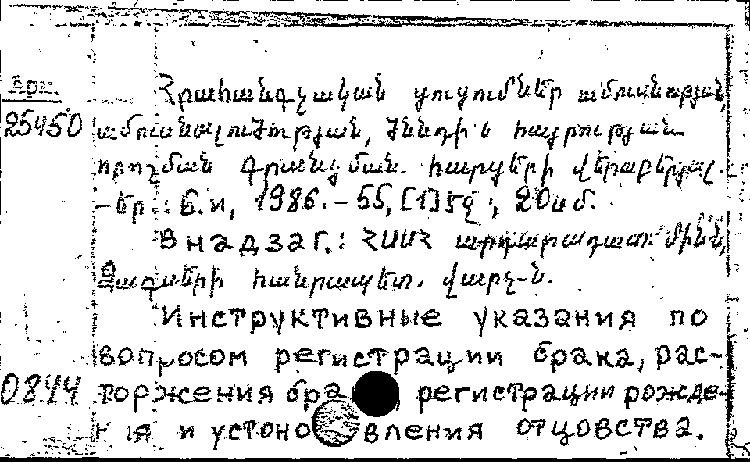 Հրահանգչական ցուցումներ ամուսնության,
25450 ամուսնալուծության, ծննդի և հայրության
որոշման գրանցման հարցերի վերաբերյալ.
-Եր.: Բ.և, 1986.-55, [1] էջ; 20սմ.
В надзаг.: ՀՍՍՀ արդարադատ. մին.,
Զագսերի հանրապետ. վարչ-ն.
Инструктивные указания по
вопросом регистрации брака, рас-
0844 торжения бра , регистрации рожде-
и устоновления отцовства.